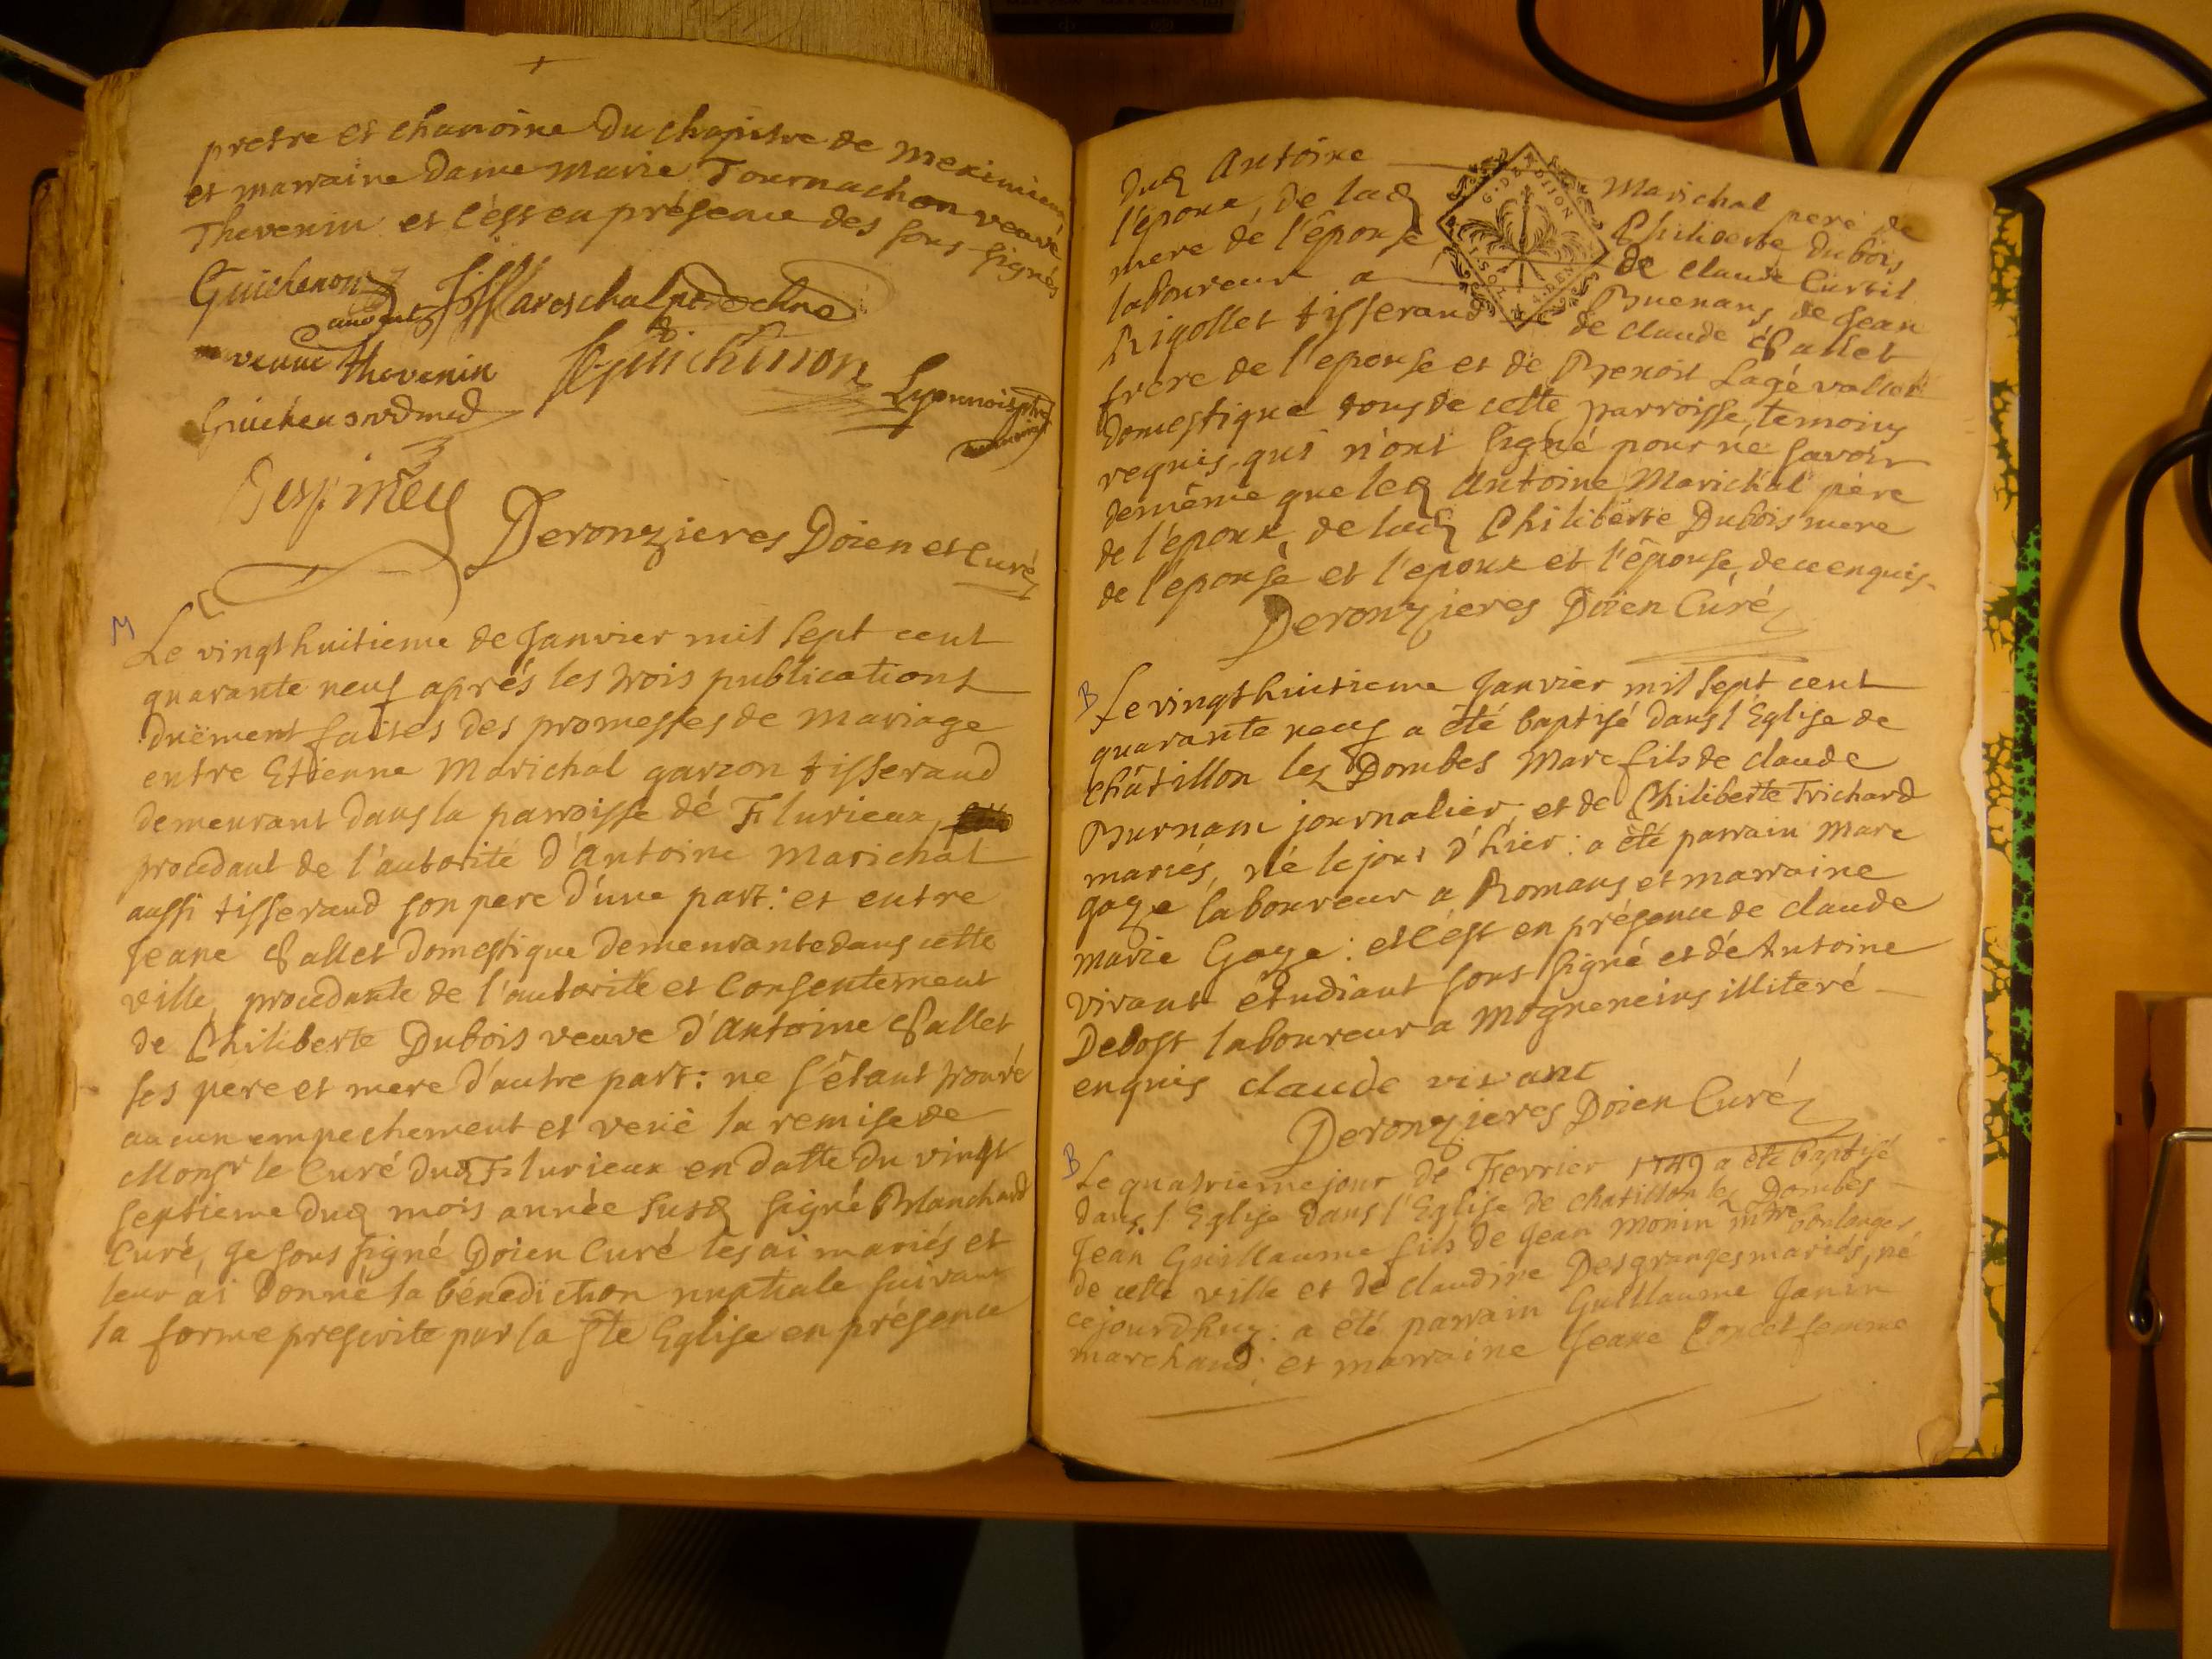 pretre et chanoine du chapitre de meximieux
et marraine dame marie Tournachon veuve
Thevenin et c'est en présence des sous signés
Guichenon
avocat Mareschal
veuve thevenin Guichenon Lyonnois ptre
Guichenon dmed
Despiney
Deronzieres Doien et Curé
M
Le vingt huitieme de Janvier mil sept cent
quarante neuf aprés les trois publications
duëment faites des promesses de mariage
entre Etienne Marichal garzon tisserand
demeurant dans la parroisse de Flurieux,
procedant de l'autorité d'Antoine Marichal
aussi tisserand son pere d'une part: et entre
Jeane Pallet domestique demeurante dans cette
ville, procedante de l'autorité et consentement
de Philiberte Dubois veuve d'Antoine Pallet
ses pere et mere d'autre part: ne s'étant trouvé
aucun empechement et veüe la remise de
Monsr le Curé dud Flurieux en datte du vingt
septieme dud mois année susd signé Blanchard
Curé, Je sous signé Doien Curé les ai mariés et
leur ai donné la bénediction nuptiale suivant
la forme prescrite par la Ste Eglise en présence
dud Antoine Marichal pere de
l'epoux, de lad Philiberte Dubois
mere de l'épouse de claude Curtil
laboureur a Buenans, de Jean
Rigollet tisserand de claude Pallet
frere de l'epouse et de Benoit Lagé vallet
domestique tous de cette parroisse, temoins
requis, qui n'ont signé pour ne savoir
demême que led Antoine Marichal pere
de l'époux, de lad Philiberte Dubois mere
de l'épouse et l'epoux et l'épouse, de ce enquis.
Deronzieres Doien Curé
G. DE DIJON
B
Le vingt huitieme Janvier mil sept cent
quarante neuf a été baptisé dans l'Eglise de
châtillon lez Dombes Marc fils de claude
Burnam journalier, et de Philiberte Trichard
mariés, né le jour d'hier: a été parrain Marc
gage laboureur a Romans et marraine
marie Gage: et c'est en présence de claude
vivant étudiant sous signé et de Antoine
Debost laboureur a Mogneneins illiteré
enquis claude vivant
Deronzieres Doien Curé
B
Le quatrieme jour de Fevrier 1749 a été baptisé
dans l'Eglise dans l'Eglise de chatillon lez Dombes
Jean Guillaume fils de Jean Monin mtre boulanger
de cette ville et de claudine Desgranges mariés, né
cejourdhuy: a été parrain Guillaume Janin
marchand; et marraine Jeane Poncet femme